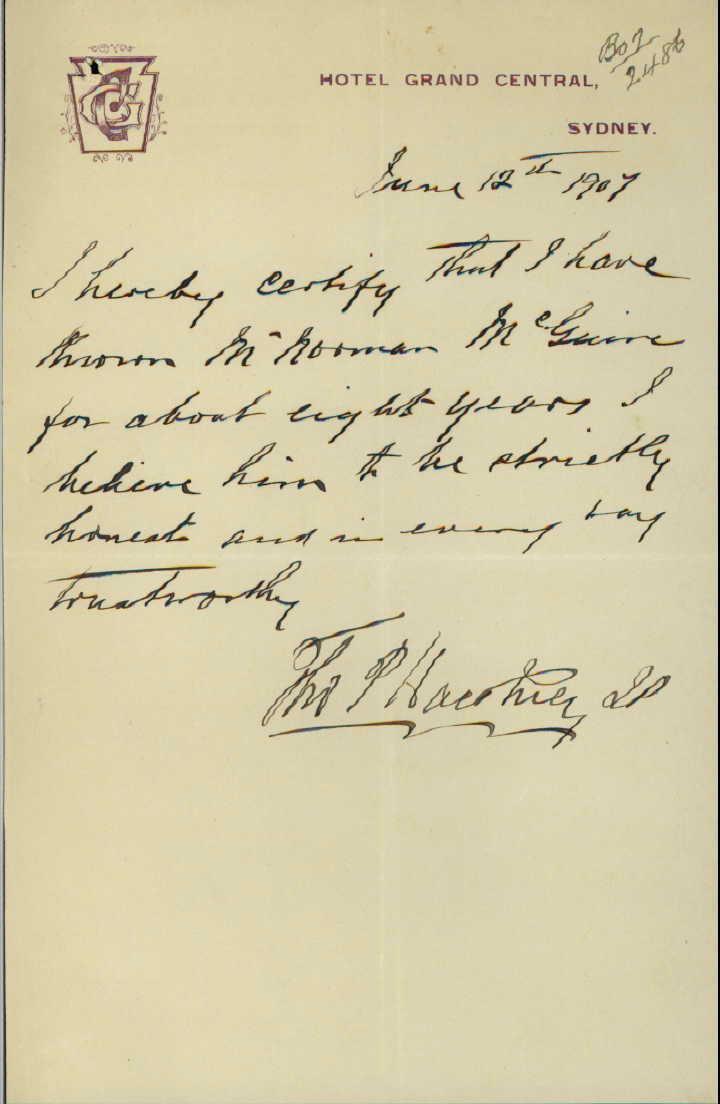 Box
248b
HOTEL GRAND CENTRAL,
SYDNEY.
June 12th 1907
I hereby certify that I have
known Mr Norman McGuire
for about eight years I
believe him to be strictly
honest and in every way
trustworthy
Tho P Hawkins JP